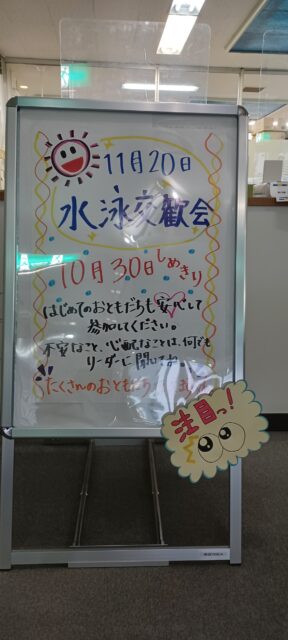 11月20日
水泳交歓会
10月30日しめきり
はじめてのおともだちも安心して
参加してください。
不安なこと、心配なことは、何でも
リーダーに聞いてね。
たくさんのおともだち
注目っ!